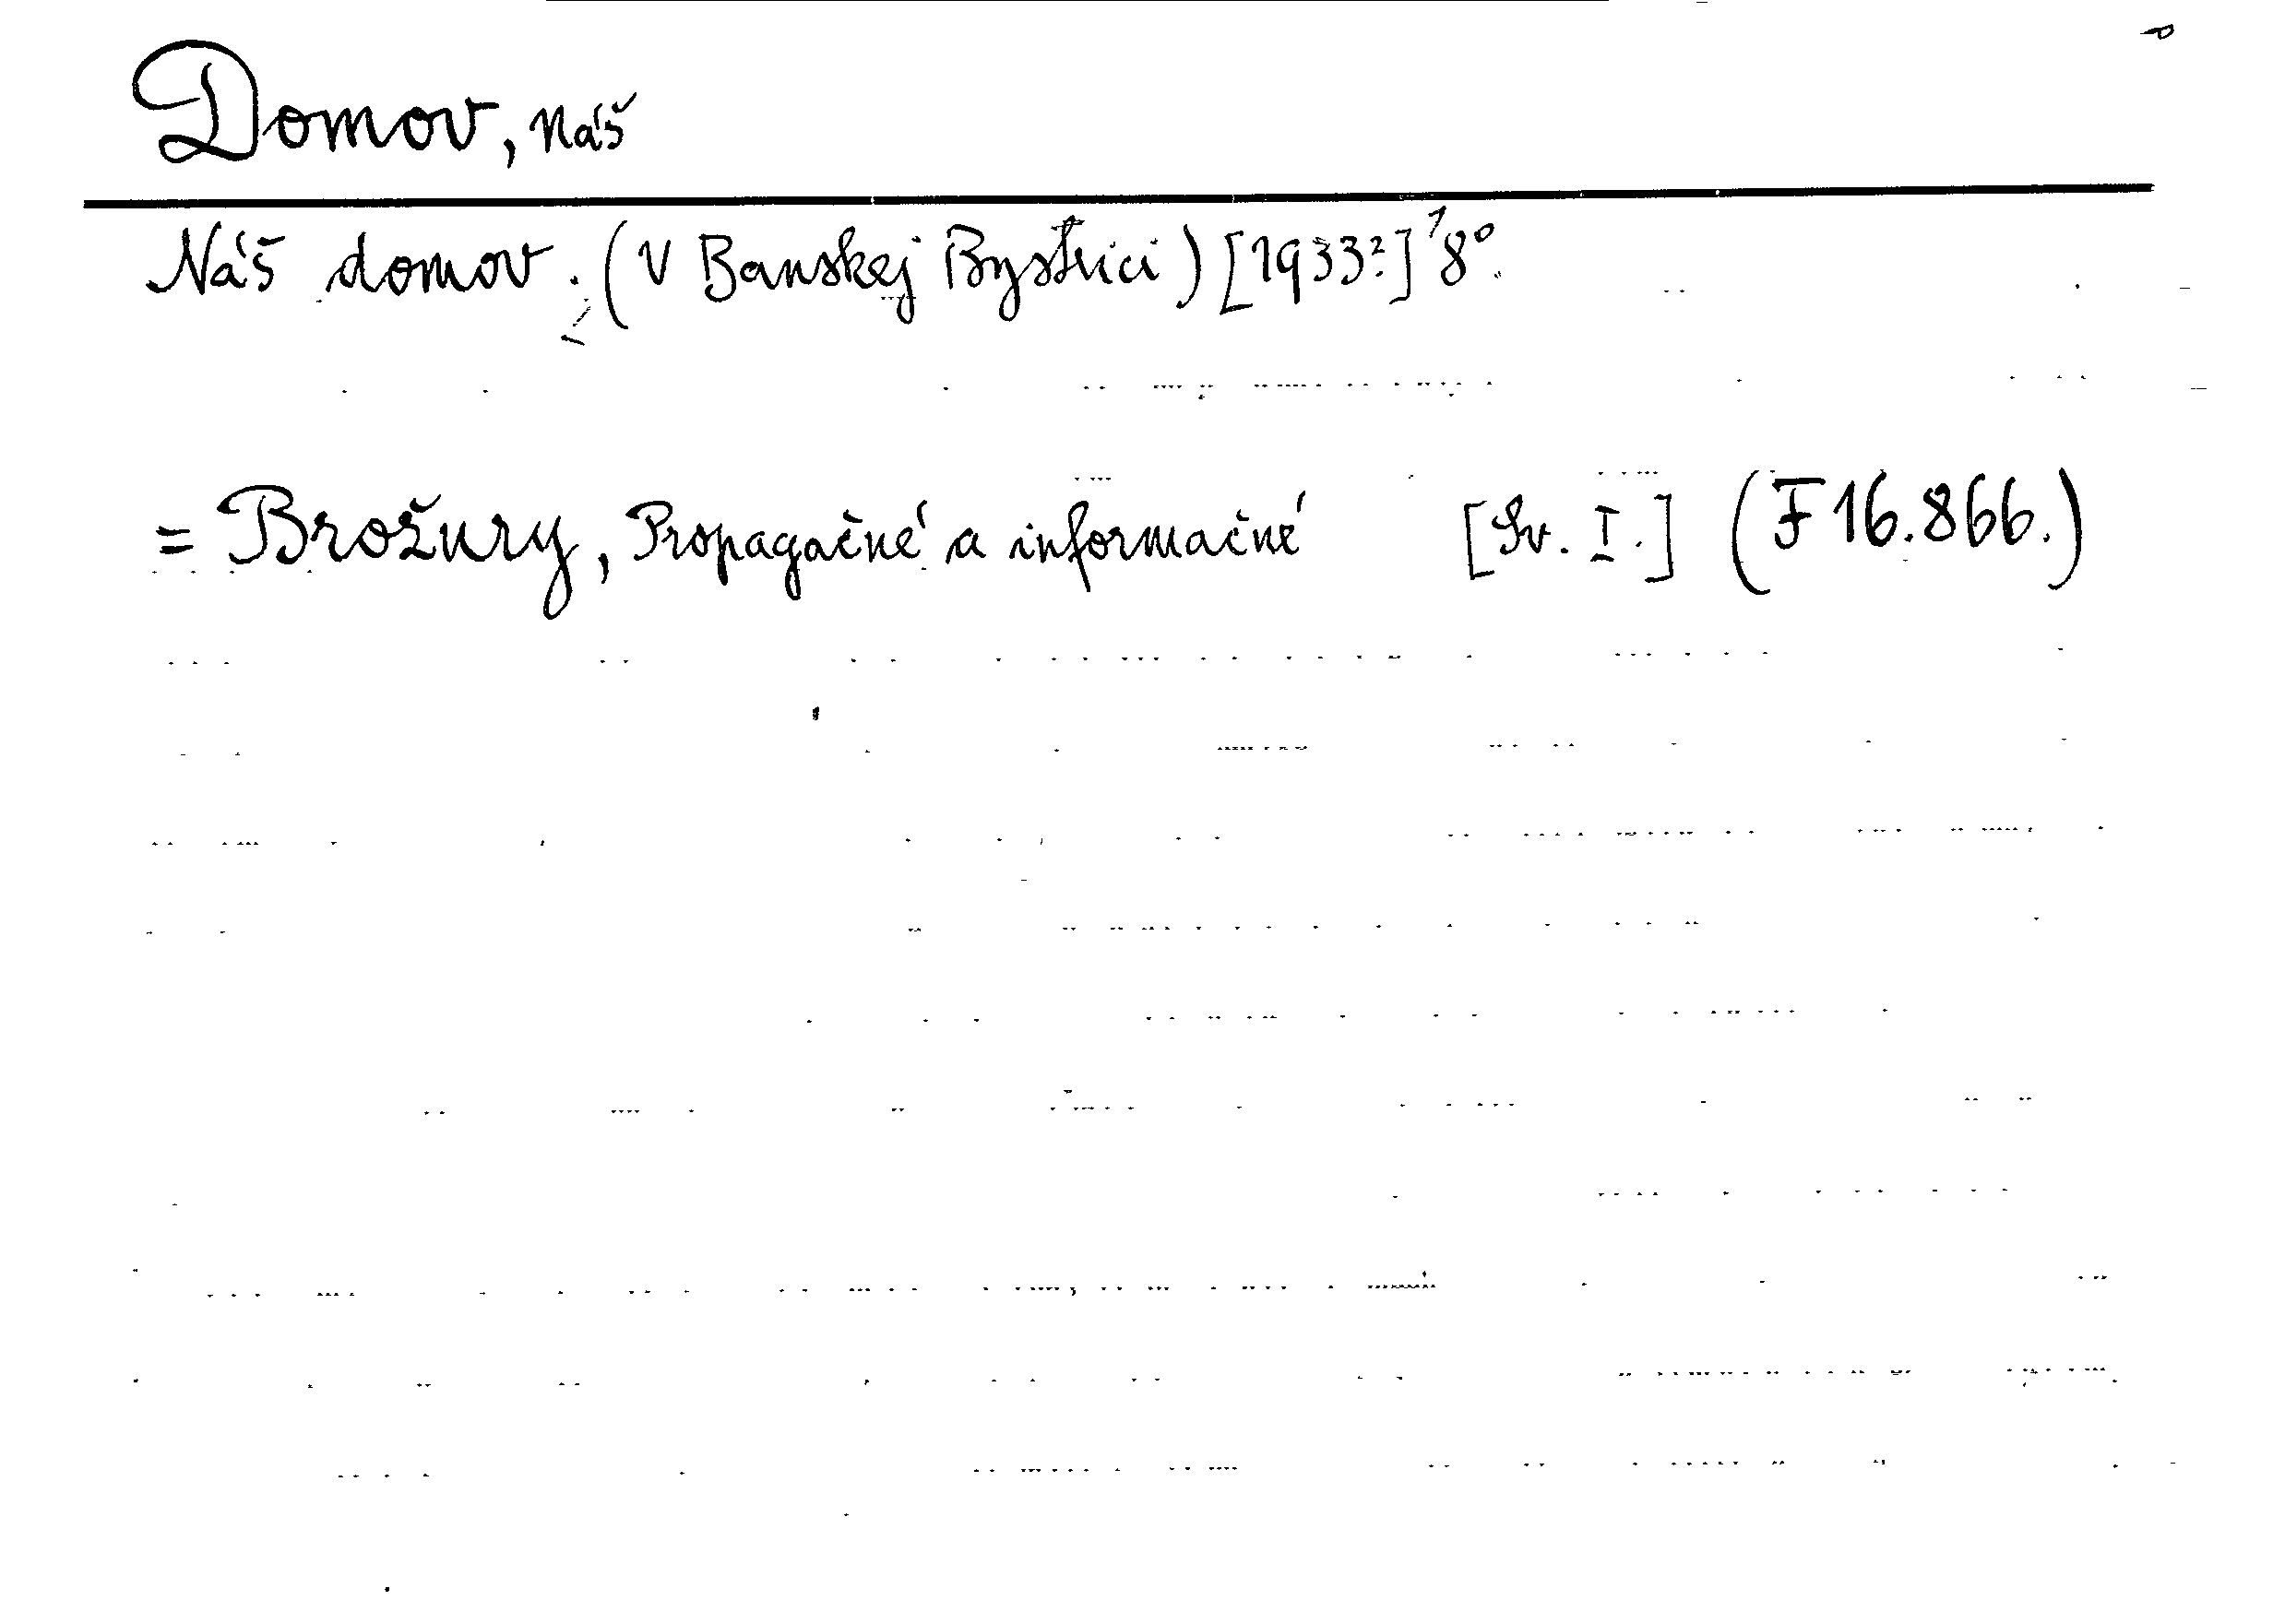 Domov, Náš
Náš domov. (V Banskej Bystrici) [1933?] 8°.
= Brožury, Propagačné a informačné [Sv. I.] (F 16.866.)